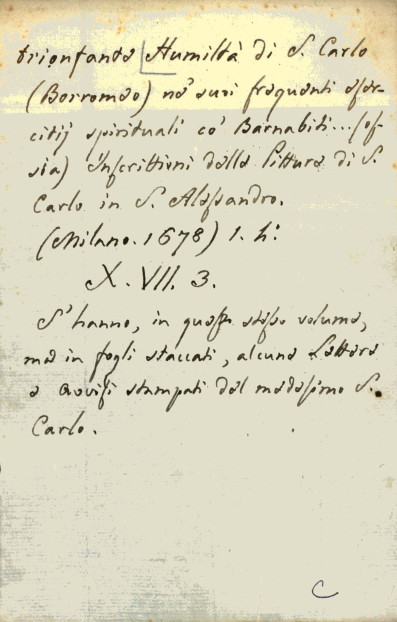 trionfante [Humiltà di S. Carlo
(Borromeo) ne' suoi frequenti eser-
citij spirituali co' Barnabiti... (os-
sia) inscrittioni delle Pitture di S.
Carlo in S. Alessandro.
(Milano. 1678) 1. h:
X. VII. 3.
S' hanno, in questo stesso volume,
ma in fogli staccati, alcune Lettere
e avvisi stampati del medesimo S.
Carlo.
C